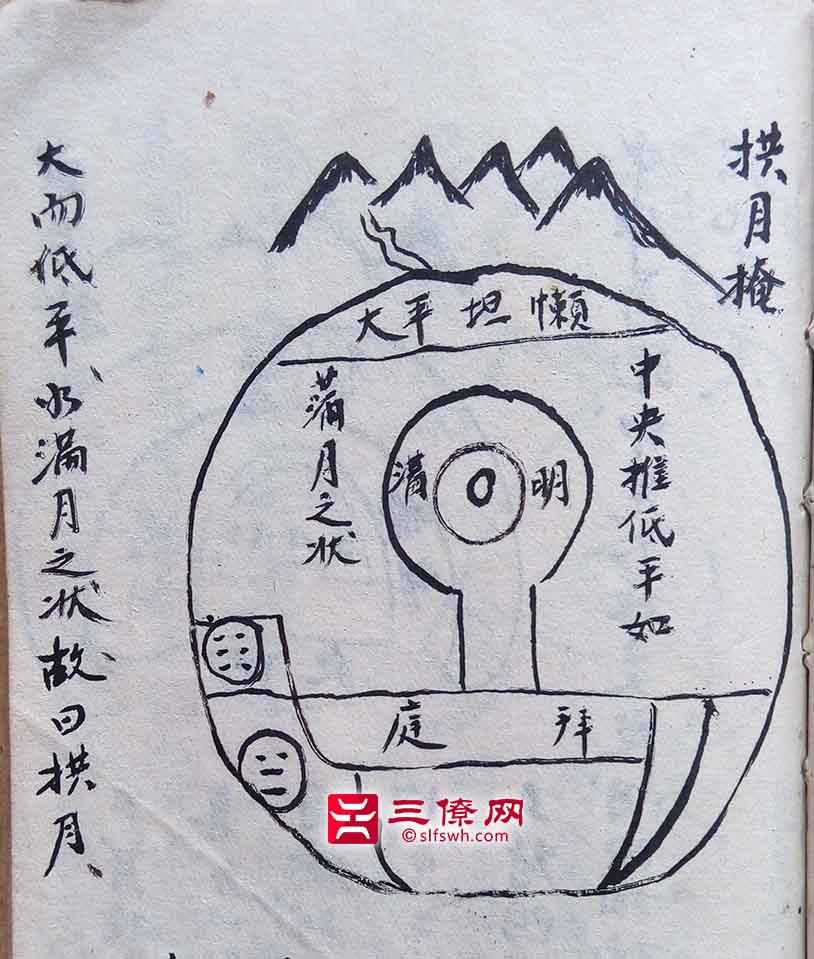 拱月掩
大平坦懒
中央推低平如
满月之状
清明
拜庭
大而低平水满月之状故曰拱月
三僚网
©slfswh.com